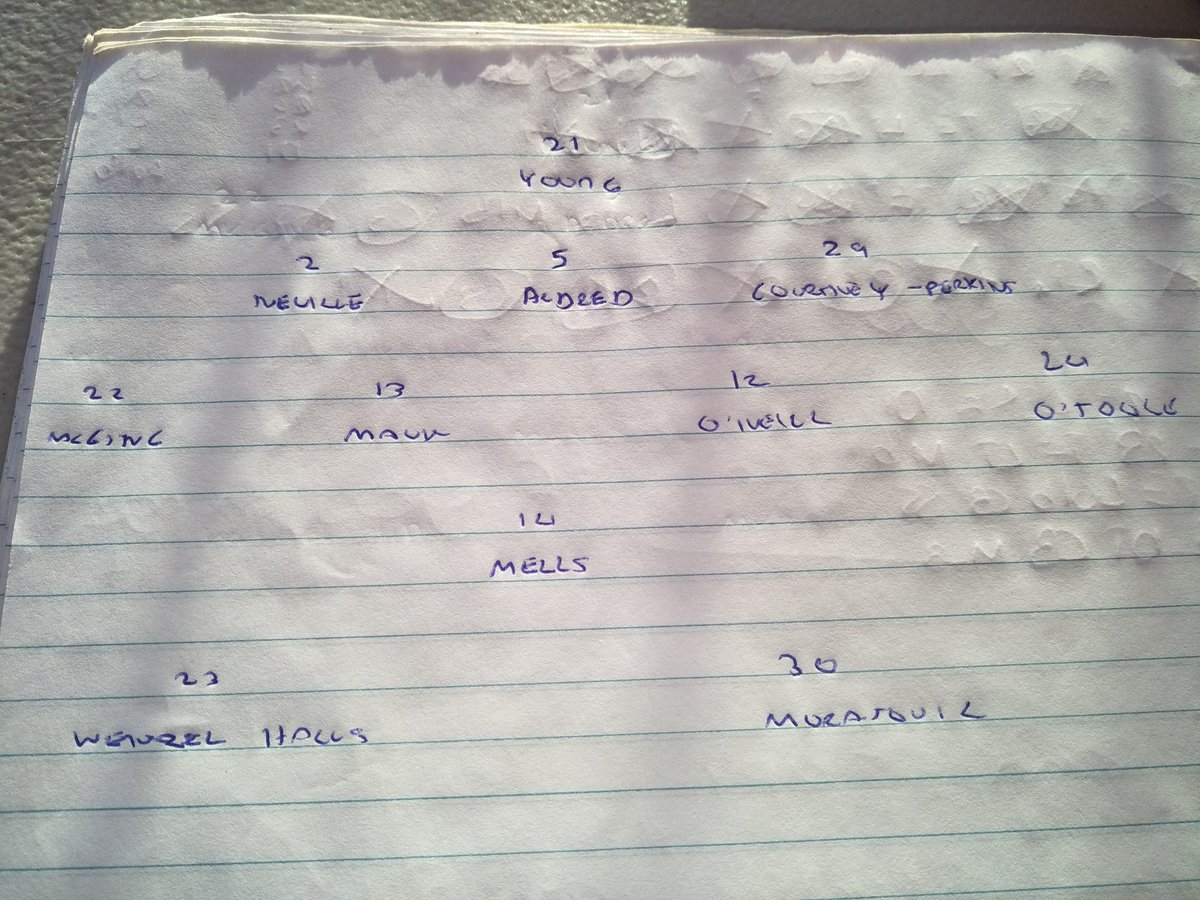 21
YOUNG
2 5 29
NEVILLE ALDRED COURTNEY-PERKINS
22 13 12 24
MCGING MAUK O'NEILL O'TOOLE
14
MELLS
23 30
WENZEL HALLS MURATOVIC